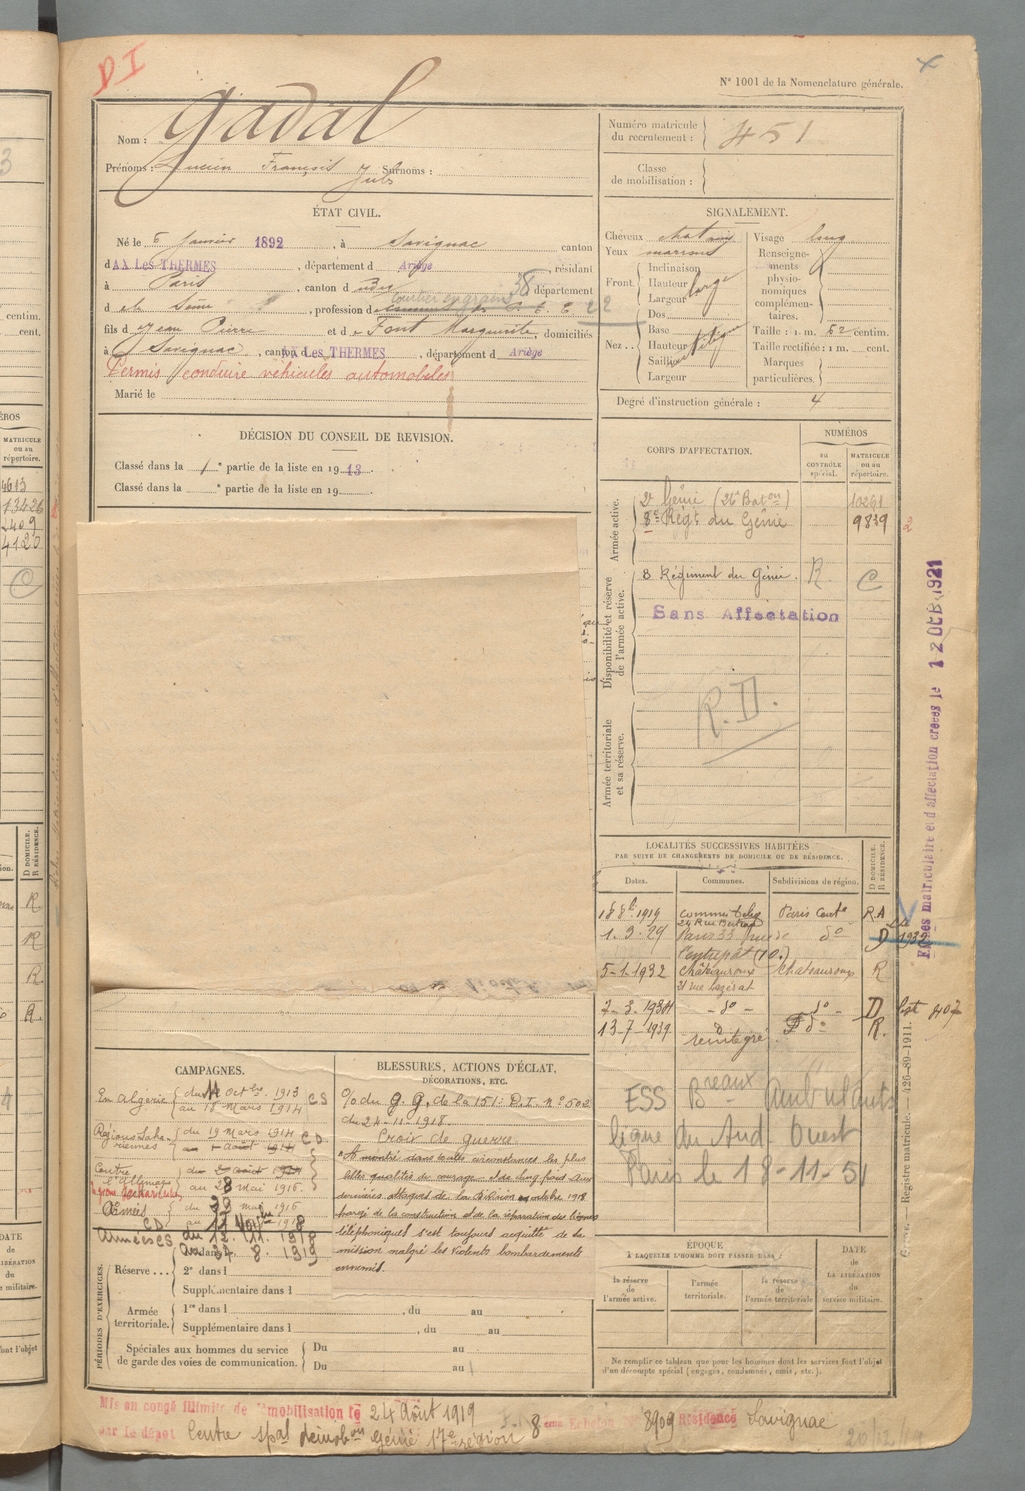 D I
N° 1001 de la Nomenclature générale.
Nom : Gadal
Prénoms : Lucien François Jules Surnoms :
Numéro matricule du recrutement : 451
Classe de mobilisation :
ÉTAT CIVIL.
Né le 6 Janvier 1892, à Savignac canton
d AX Les THERMES, département d Ariège, résidant
à Paris, canton d 38 département
d e la Seine, profession d courtier en grains 22
fils d e Jean Pierre et d e Font Marguerite, domiciliés
à Savignac, canton d AX Les THERMES, département d Ariège
Permis conduire véhicules automobiles
Marié le
SIGNALEMENT.
Cheveux chatains
Yeux marrons
Front. Inclinaison
Hauteur
Largeur large
Nez. Dos
Base
Hauteur
Saillie
Largeur
Visage long
Renseignements physionomiques complémentaires.
Taille : 1 m. 62 centim.
Taille rectifiée : 1 m. cent.
Marques particulières.
Degré d'instruction générale : 4
DÉCISION DU CONSEIL DE REVISION.
Classé dans la 1e partie de la liste en 1913.
Classé dans la e partie de la liste en 19
CORPS D'AFFECTATION.
NUMÉROS
au CONTRÔLE spécial.
MATRICULE ou au répertoire.
Armée active.
2e Génie (26e Baton) 10261
8e Régt du Génie 9839 2
Disponibilité et réserve de l'armée active.
8 Régiment du Génie. R C
Sans Affectation
R.D.
Armée territoriale et sa réserve.
12 OCT 1921
LOCALITÉS SUCCESSIVES HABITÉES
PAR SUITE DE CHANGEMENTS DE DOMICILE OU DE RÉSIDENCE.
Dates. Communes. Subdivisions de région. D DOMICILE. R RÉSIDENCE.
1919 Paris Cent R.A
24 Rue
1.3.29 Paris 33 do D 1932
l'entrepôt (10e)
5-1-1932 Châteauroux Chateauroux R
7-3-1934 - do - do D
13-7-1939 do do R.
reintegré
ESS Breaux Ambulants
ligne du Sud Ouest
Paris le 18-11-51
CAMPAGNES.
En Algérie du 11 Octbre 1913 CS
au 18 Mars 1914
Régions Sahariennes du 19 Mars 1914 CD
au 1 Août 1914
Contre l'Allemagne du 2 août 1914
au 28 Mai 1916.
Armées du 29 mai 1916
CD au 11 Nov bre 1918
Armées CS du 12. 11. 1918
au 24. 8. 1919
BLESSURES, ACTIONS D'ÉCLAT,
DÉCORATIONS, ETC.
O/ du G. G. de la 151e D.I. n° 502
du 24-11-1918.
Croix de guerre.
"A montré dans toutes circonstances les plus
belles qualités de courage et de sang froid. Aux
dernières attaques de la Division en octobre 1918
chargé de la construction et de la réparation des lignes
téléphoniques s'est toujours acquitté de sa
mission malgré les violents bombardements
ennemis.
PÉRIODES D'EXERCICES.
Réserve ... 2e dans l
Supplémentaire dans l
Armée territoriale. 1re dans l , du au
Supplémentaire dans l , du au
Spéciales aux hommes du service de garde des voies de communication. Du au
Du au
ÉPOQUE
À LAQUELLE L'HOMME DOIT PASSER DANS :
la réserve de l'armée active.
l'armée territoriale.
la réserve de l'armée territoriale
DATE DE LA LIBÉRATION du service militaire.
Ne remplir ce tableau que pour les hommes dont les services font l'objet
d'un décompte spécial (engagés, condamnés, omis, etc.).
Registre matricule. — 126-89-1911.
Mis au congé illimité de démobilisation le 24 Août 1919
par le dépôt Centre spal démobon Génie 17e région 8eme Echelon 8909 Résidence Savignac